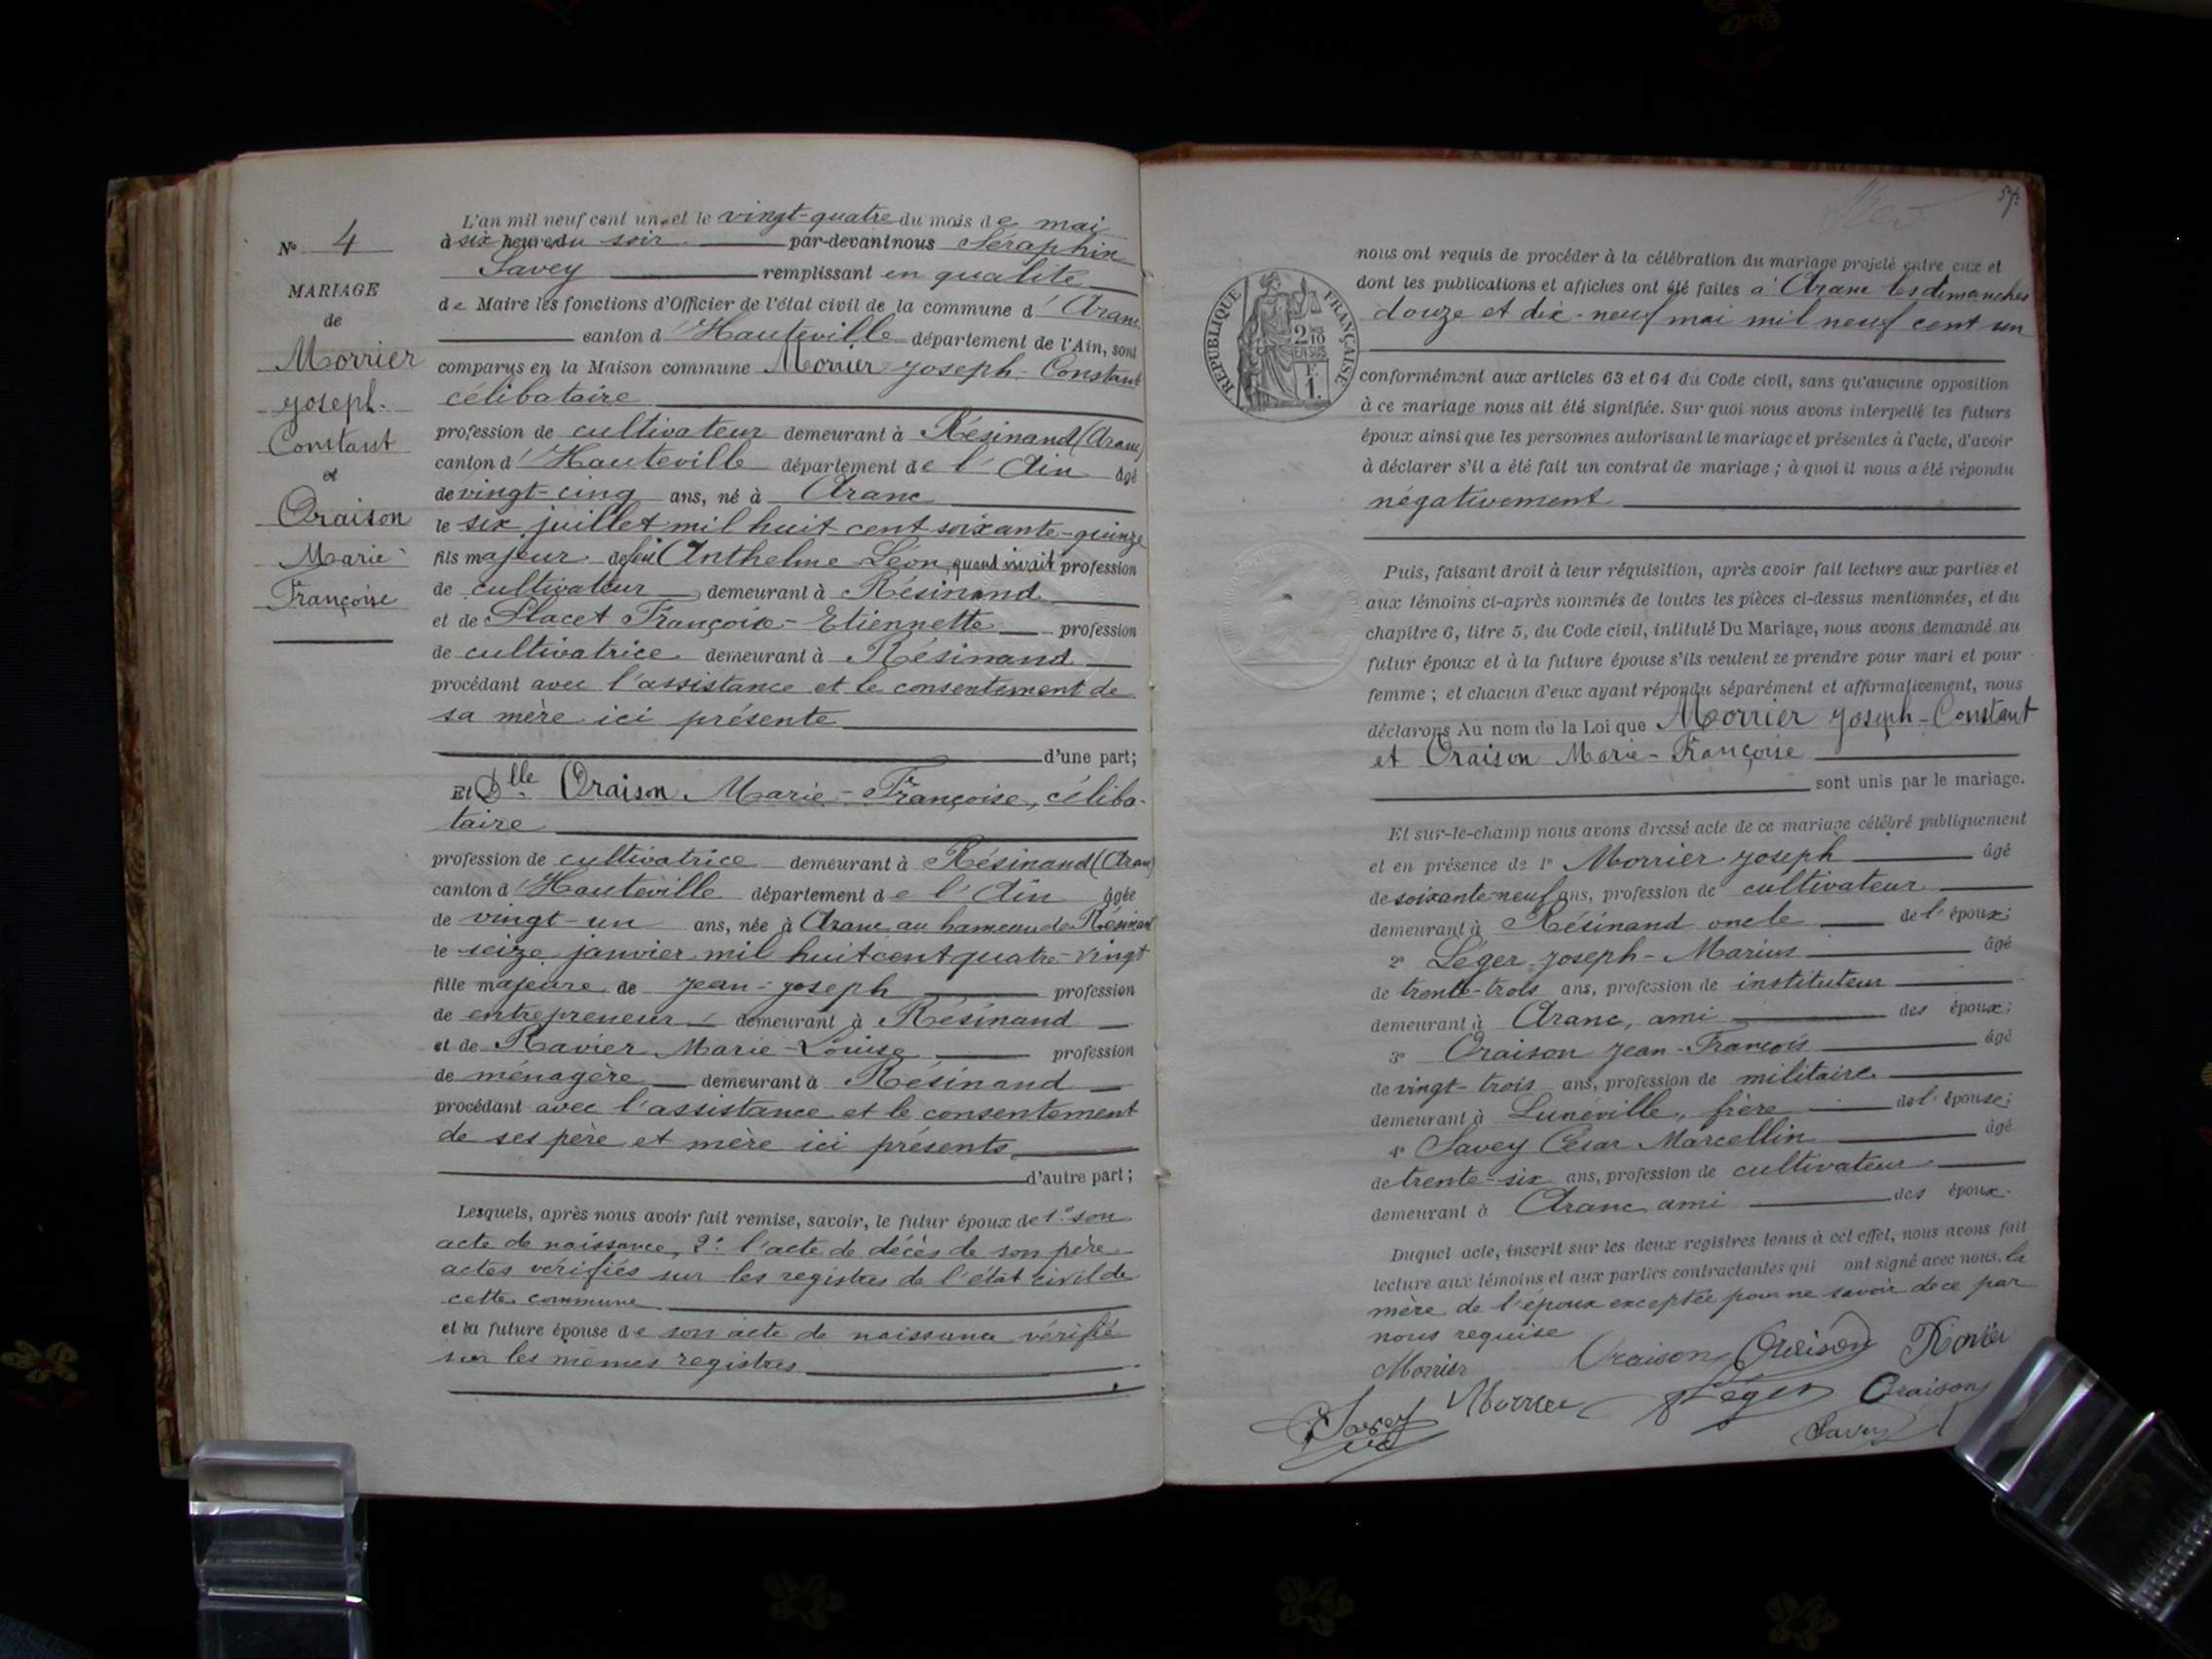 N° 4
MARIAGE
de
Morrier
Joseph-
Constant
et
Oraison
Marie-
Françoise
L'an mil neuf cent un et le vingt-quatre du mois de mai
à six heures du soir par-devant nous Séraphin
Savey remplissant en qualité
de Maire les fonctions d'Officier de l'état civil de la commune d'Aranc
canton d'Hauteville département de l'Ain, sont
comparus en la Maison commune Morrier Joseph-Constant
célibataire
profession de cultivateur demeurant à Résinand (Aranc)
canton d'Hauteville département de l'Ain âgé
de vingt-cinq ans, né à Aranc
le six juillet mil huit cent soixante-quinze
fils majeur de feu Anthelme Léon, quand vivait profession
de cultivateur demeurant à Résinand
et de Françoise-Etiennette profession
de cultivatrice demeurant à Résinand
procédant avec l'assistance et le consentement de
sa mère ici présente
d'une part;
Et Dlle Oraison Marie-Françoise, céliba-
taire
profession de cultivatrice demeurant à Résinand (Aranc)
canton d'Hauteville département de l'Ain âgée
de vingt-un ans, née à Aranc au hameau de Résinand
le seize janvier mil huit cent quatre-vingt
fille majeure de Jean-Joseph profession
de entrepreneur demeurant à Résinand
et de Ravier Marie-Louise profession
de ménagère demeurant à Résinand
procédant avec l'assistance et le consentement
de ses père et mère ici présents
d'autre part;
Lesquels, après nous avoir fait remise, savoir, le futur époux de 1° son
acte de naissance, 2° l'acte de décès de son père
actes vérifiés sur les registres de l'état civil de
cette commune
et la future épouse de son acte de naissance vérifié
sur les mêmes registres
57
RÉPUBLIQUE FRANÇAISE
2/10
EN SUS
F.
1.
nous ont requis de procéder à la célébration du mariage projeté entre eux et
dont les publications et affiches ont été faites à Aranc les dimanches
douze et dix-neuf mai mil neuf cent un
conformément aux articles 63 et 64 du Code civil, sans qu'aucune opposition
à ce mariage nous ait été signifiée. Sur quoi nous avons interpellé les futurs
époux ainsi que les personnes autorisant le mariage et présentes à l'acte, d'avoir
à déclarer s'il a été fait un contrat de mariage ; à quoi il nous a été répondu
négativement
Puis, faisant droit à leur réquisition, après avoir fait lecture aux parties et
aux témoins ci-après nommés de toutes les pièces ci-dessus mentionnées, et du
chapitre 6, titre 5, du Code civil, intitulé Du Mariage, nous avons demandé au
futur époux et à la future épouse s'ils veulent se prendre pour mari et pour
femme ; et chacun d'eux ayant répondu séparément et affirmativement, nous
déclarons Au nom de la Loi que Morrier Joseph-Constant
et Oraison Marie-Françoise
sont unis par le mariage.
Et sur-le-champ nous avons dressé acte de ce mariage célébré publiquement
et en présence de 1° Morrier Joseph âgé
de soixante-neuf ans, profession de cultivateur
demeurant à Résinand oncle de l'époux;
2° Léger Joseph-Marius âgé
de trente-trois ans, profession de instituteur
demeurant à Aranc, ami des époux;
3° Oraison Jean-François âgé
de vingt-trois ans, profession de militaire
demeurant à Lunéville, frère de l'épouse;
4° Savey César Marcellin âgé
de trente-six ans, profession de cultivateur
demeurant à Aranc, ami des époux.
Duquel acte, inscrit sur les deux registres tenus à cet effet, nous avons fait
lecture aux témoins et aux parties contractantes qui ont signé avec nous, la
mère de l'époux exceptée pour ne savoir de ce par
nous requise
Morrier Oraison Oraison Ravier
Savey Morrier Léger Oraison
Savey